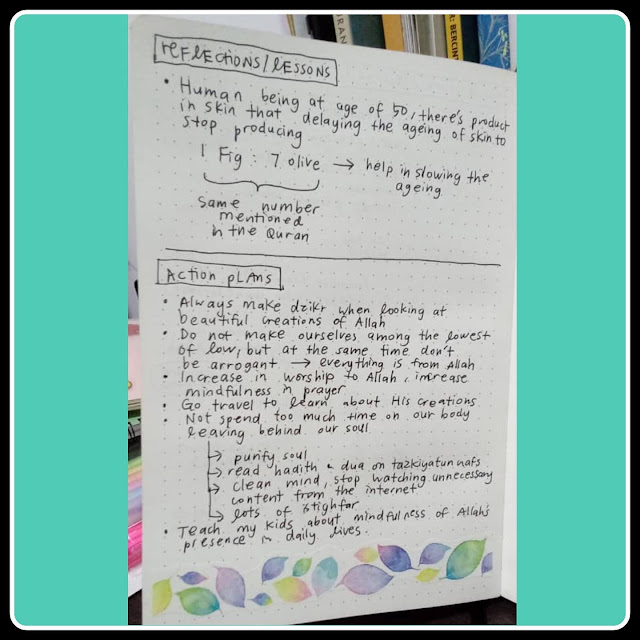 IRAN
BERCINT
REFLECTIONS/LESSONS
• Human being at age of 50, there's product
in skin that delaying the ageing of skin to
stop producing
1 Fig : 7 olive → help in slowing the
ageing
Same number
mentioned
in the Quran
ACTION PLANS
• Always make dzikr when looking at
beautiful creations of Allah
• Do not make ourselves among the lowest
of low, but at the same time don't
be arrogant → everything is from Allah
• Increase in worship to Allah, increase
mindfulness in prayer
• Go travel to learn about His creations
• Not spend too much time on our body
leaving behind our soul
→ purify soul
→ read hadith & dua on tazkiyatun nafs
→ clean mind, stop watching unnecessary
content from the internet
→ lots of istighfar
• Teach my kids about mindfulness of Allah's
presence in daily lives.